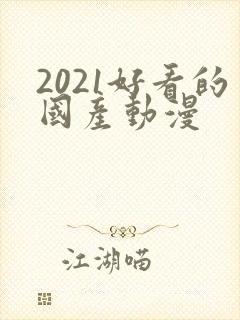 2021好看的
國産動漫
江湖喵